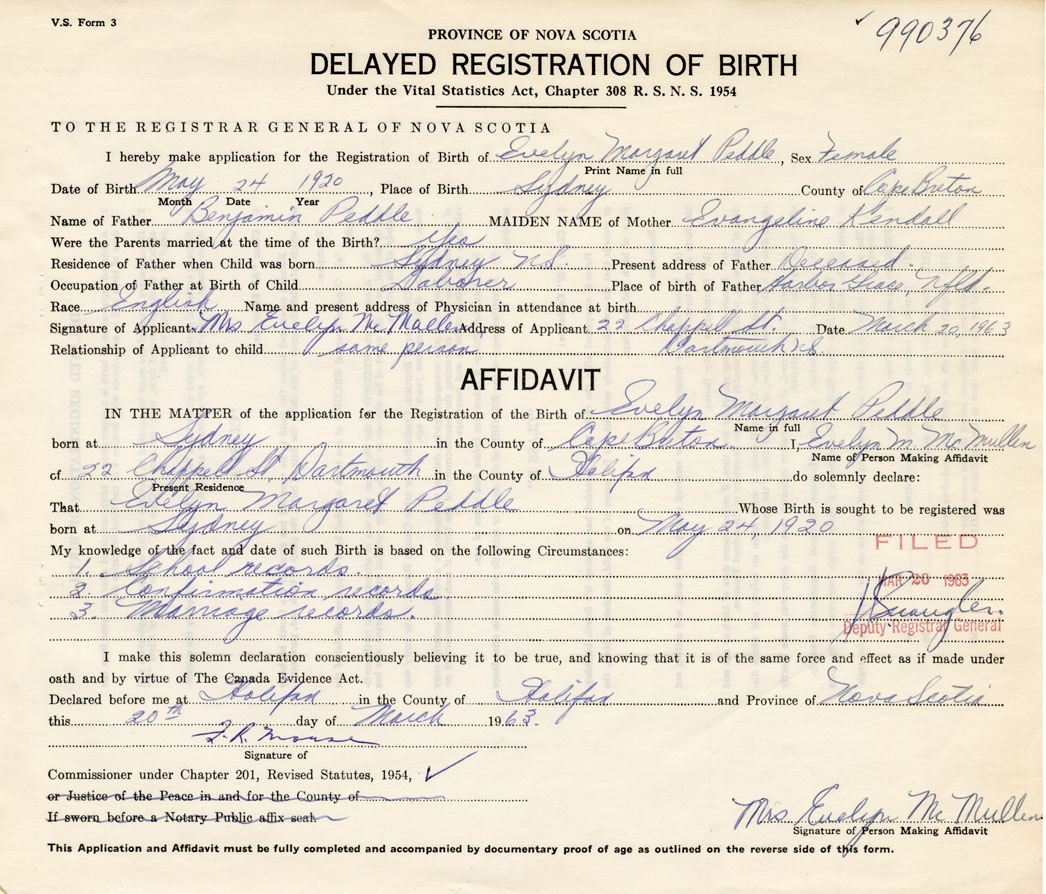 V.S. Form 3
✓ 990376
PROVINCE OF NOVA SCOTIA
DELAYED REGISTRATION OF BIRTH
Under the Vital Statistics Act, Chapter 308 R. S. N. S. 1954
TO THE REGISTRAR GENERAL OF NOVA SCOTIA
I hereby make application for the Registration of Birth of Evelyn Margaret Peddle, Sex Female
Print Name in full
Date of Birth May 24 1920, Place of Birth Sydney County of Cape Breton
Month Date Year
Name of Father Benjamin Peddle MAIDEN NAME of Mother Evangeline Kendall
Were the Parents married at the time of the Birth? Yes
Residence of Father when Child was born Sydney N.S. Present address of Father Deceased.
Occupation of Father at Birth of Child Laborer Place of birth of Father Harbor Grace, Nfld.
Race English Name and present address of Physician in attendance at birth
Signature of Applicant Mrs Evelyn McMullen Address of Applicant 22 Chappell St. Date March 20, 1963
Relationship of Applicant to child "same person" Dartmouth NS
AFFIDAVIT
IN THE MATTER of the application for the Registration of the Birth of Evelyn Margaret Peddle
Name in full
born at Sydney in the County of Cape Breton. I, Evelyn M. McMullen
Name of Person Making Affidavit
of 22 Chappell St, Dartmouth in the County of Halifax do solemnly declare:
Present Residence
That Evelyn Margaret Peddle Whose Birth is sought to be registered was
born at Sydney on May 24, 1920
FILED
My knowledge of the fact and date of such Birth is based on the following Circumstances:
1. School records.
MAR 20 1963
2. Confirmation records
3. Marriage records.
Deputy Registrar General
I make this solemn declaration conscientiously believing it to be true, and knowing that it is of the same force and effect as if made under
oath and by virtue of The Canada Evidence Act.
Declared before me at Halifax in the County of Halifax and Province of Nova Scotia
this 20th day of March 1963.
Signature of
Commissioner under Chapter 201, Revised Statutes, 1954, ✓
or Justice of the Peace in and for the County of
If sworn before a Notary Public affix seal.
Mrs Evelyn McMullen
Signature of Person Making Affidavit
This Application and Affidavit must be fully completed and accompanied by documentary proof of age as outlined on the reverse side of this form.